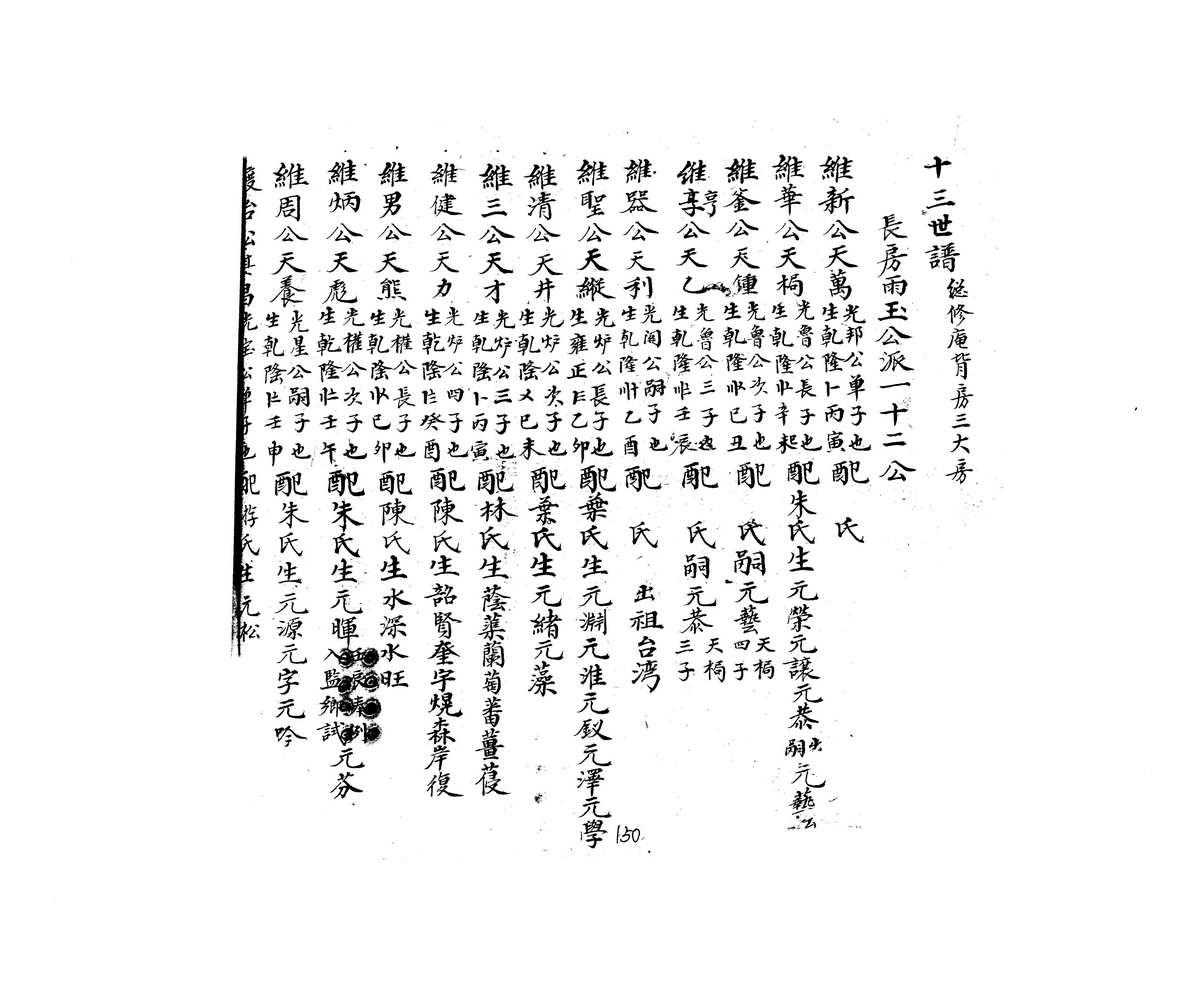 十三世譜 總修庵背房三大房
長房雨玉公派一十二公
維新公天萬 光邦公单子也 生乾隆〡丙寅 配 氏
維華公天楇 光魯公長子也 生乾隆〢辛 配朱氏生元榮元讓元恭出嗣元藝公
維釜公天鍾 光魯公次子也 生乾隆己丑 配 氏嗣元藝 天楇四子
维享亨公天乙 光魯公三子也 生乾隆壬辰 配 氏嗣元恭 天楇三子
維器公天利 光閣公嗣子也 生乾隆乙酉 配 氏 出祖台湾
維聖公天縱 光炉公長子也 生雍正乙卯 配葉氏生元淵元淮元釵元澤元學
維清公天井 光炉公次子也 生乾隆〤己未 配葉氏生元緒元藻
維三公天才 光炉公三子也 生乾隆〡丙寅 配林氏生蔭蕖蘭萄蕃薑葠
維健公天力 光炉公四子也 生乾隆癸酉 配陳氏生韶賢奎字焜森岸復
維男公天熊 光權公長子也 生乾隆己卯 配陳氏生水深水旺
維炳公天彪 光權公次子也 生乾隆壬午 配朱氏生元暉 入監鄉試 元芬
維周公天養 光星公嗣子也 生乾隆壬申 配朱氏生元源元字元吟
公 昌 光 公单子也 配游氏生元松
150